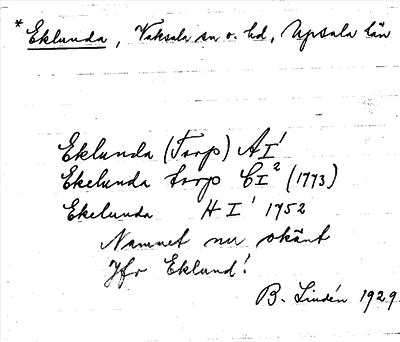 * Eklunda, Vaksala sn o. hd, Upsala län
Eklunda (Torp) AI¹
Ekelunda torp CI² (1773)
Ekelunda HI¹ 1752
Namnet nu okänt
Jfr Eklund!
B. Lindén 1929.